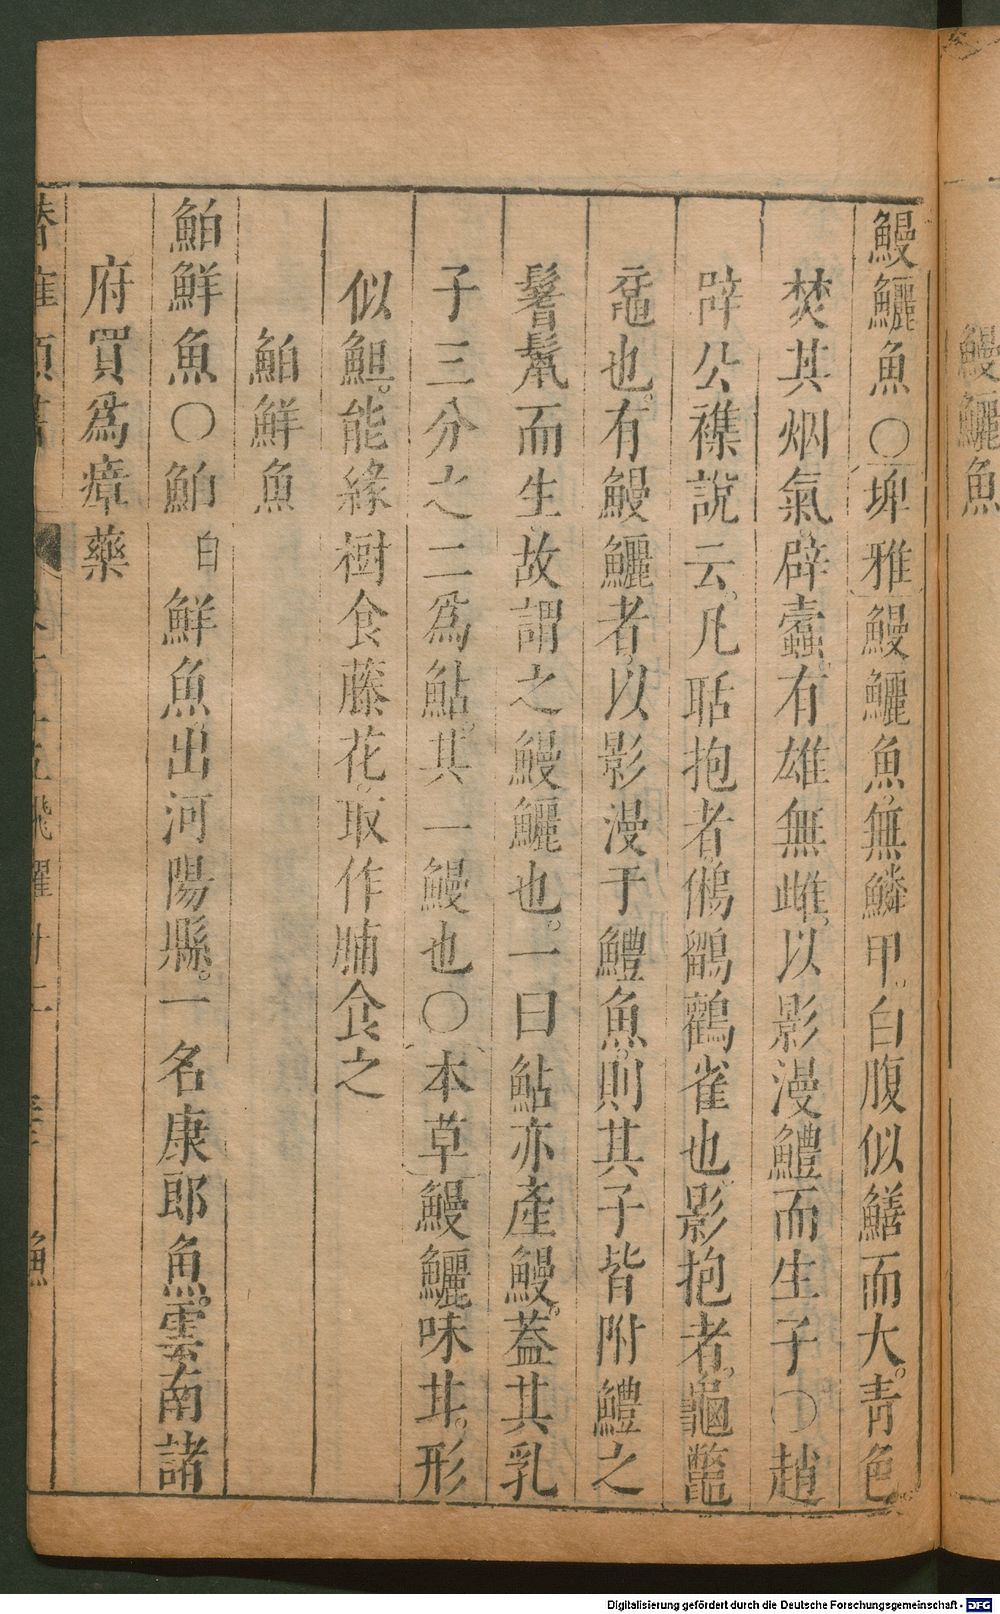 鰻鱺魚
鰻鱺魚〇埤雅鰻鱺魚無鱗甲白腹似鱔而大青色
焚其烟氣辟蠹有雄無雌以影漫鱧而生子〇趙
辟公襍說云凡聒抱者鵂鶹鸛雀也影抱者龜鱉
黿也有鰻鱺者以影漫于鱧魚則其子皆附鱧之
鬐鬣而生故謂之鰻鱺也一曰鮎亦產鰻葢其乳
子三分之二爲鮎其一鰻也〇本草鰻鱺味甘形
似䱇能緣樹食藤花取作脯食之
鮊鮮魚
鮊鮮魚〇鮊白鮮魚出河陽縣一名康郎魚雲南諸
府買爲瘴藥
飛躍廿二 漁
Digitalisierung gefördert durch die Deutsche Forschungsgemeinschaft - DFG